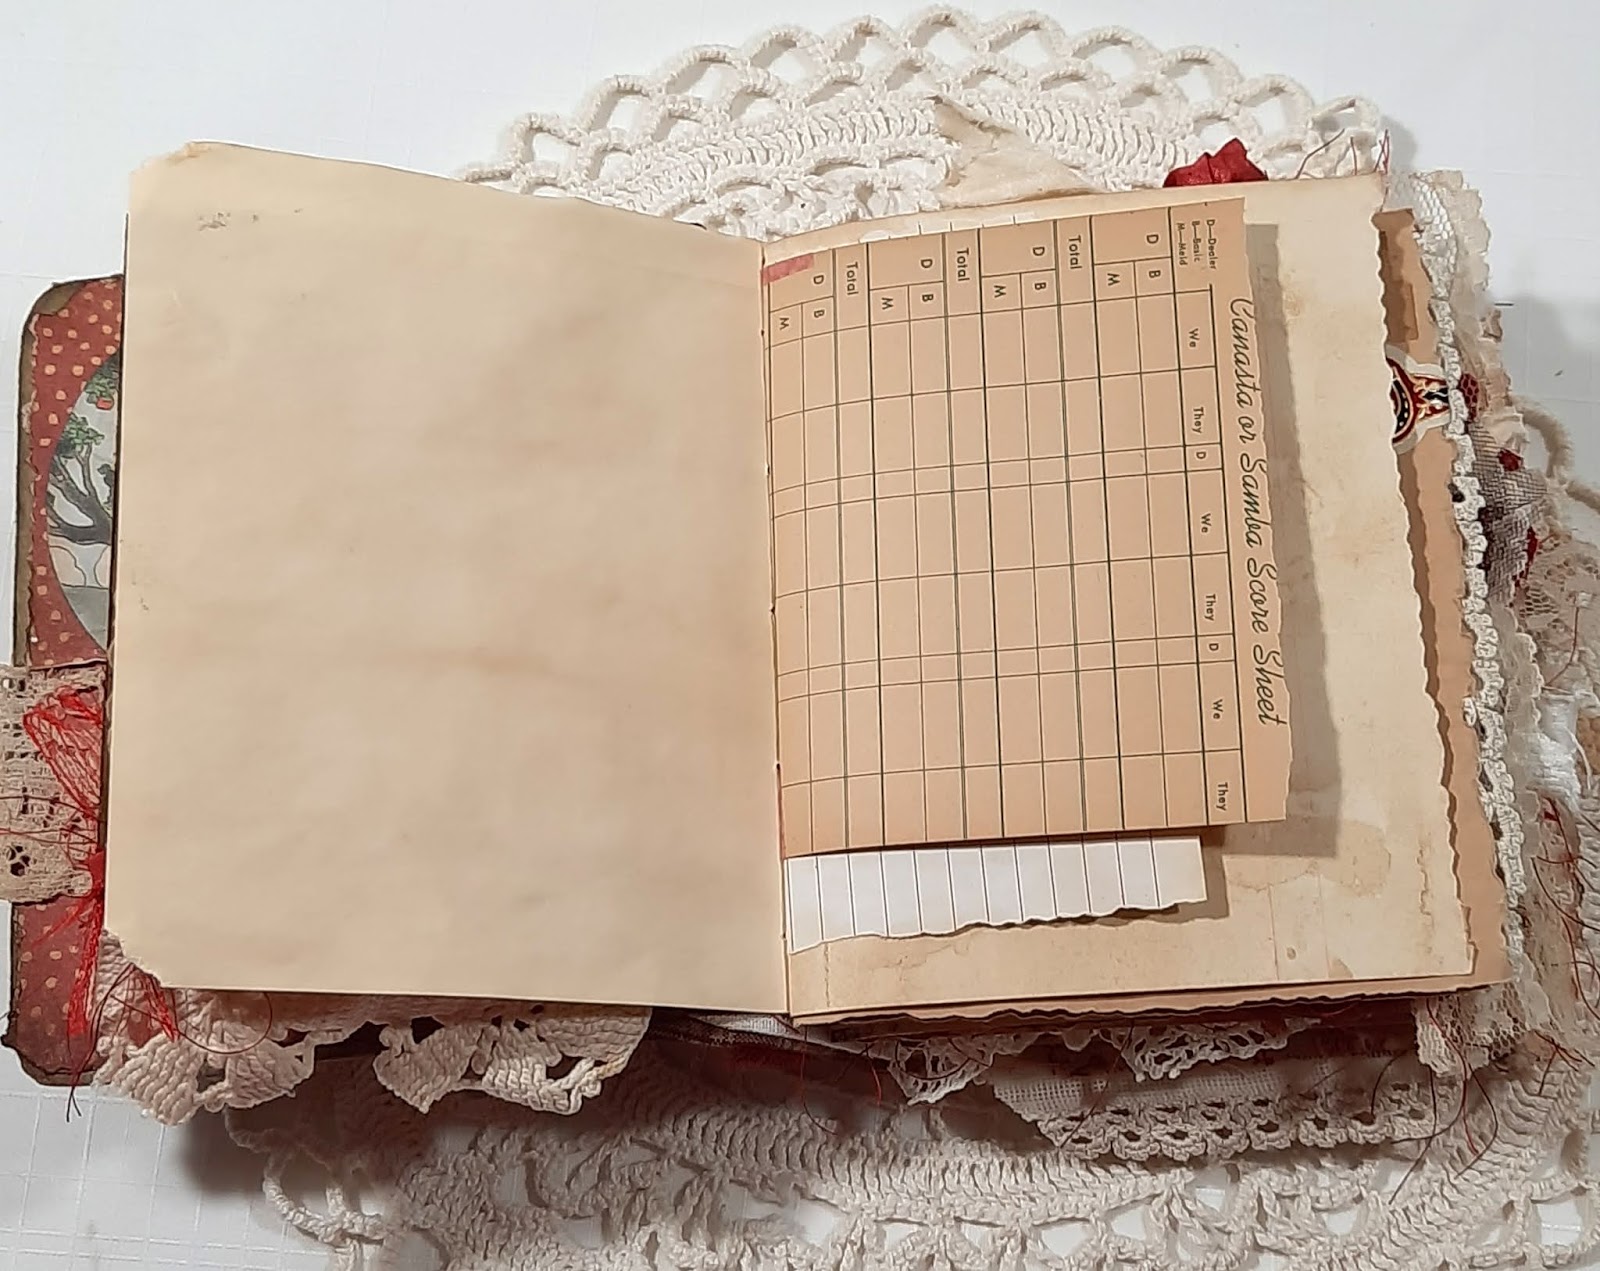 Canasta or Samba Score Sheet
D—Dealer
B—Basic
M—Meld
We They D We They D We They
D B
M
Total
D B
M
Total
D B
M
Total
D B
M